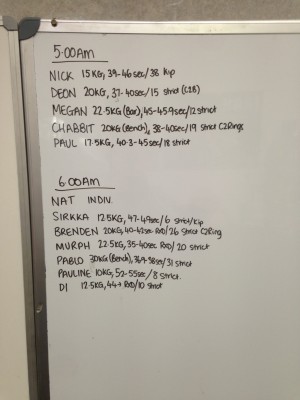 5:00AM
NICK 15KG, 39-46sec/38 Kip
DEON 20KG, 37-40sec/15 strict
MEGAN 22.5KG (Bar), 45-459sec/12 strict
CHABBIT 20KG (Bench), 38-40sec/19 strict C2Rings
PAUL 17.5KG, 40.3-45sec/18 strict
6:00AM
NAT INDIV.
SIRKKA 12.5KG, 47-49sec/6 strict/kip
BRENDEN 20KG, 40-42sec RXD/26 Strict C2Ring
MURPH 22.5KG, 35-40sec RXD/20 strict
PABLO 30KG (Bench), sec/31 strict
PAULINE 10KG, 52-55sec/8 strict.
DI 12.5KG, 44+ RXD/10 strict